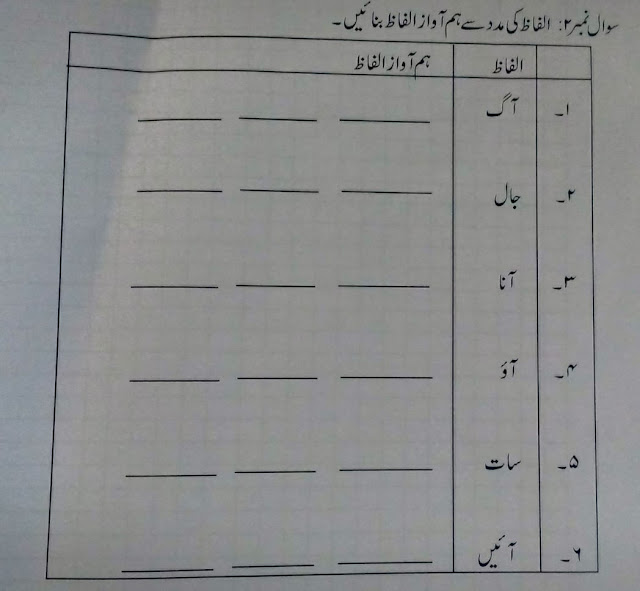 سوال نمبر ۲: الفاظ کی مدد سے ہم آواز الفاظ بنائیں۔
الفاظ ہم آواز الفاظ
۱۔ آگ
۲۔ جال
۳۔ آنا
۴۔ آؤ
۵۔ سات
۶۔ آئیں